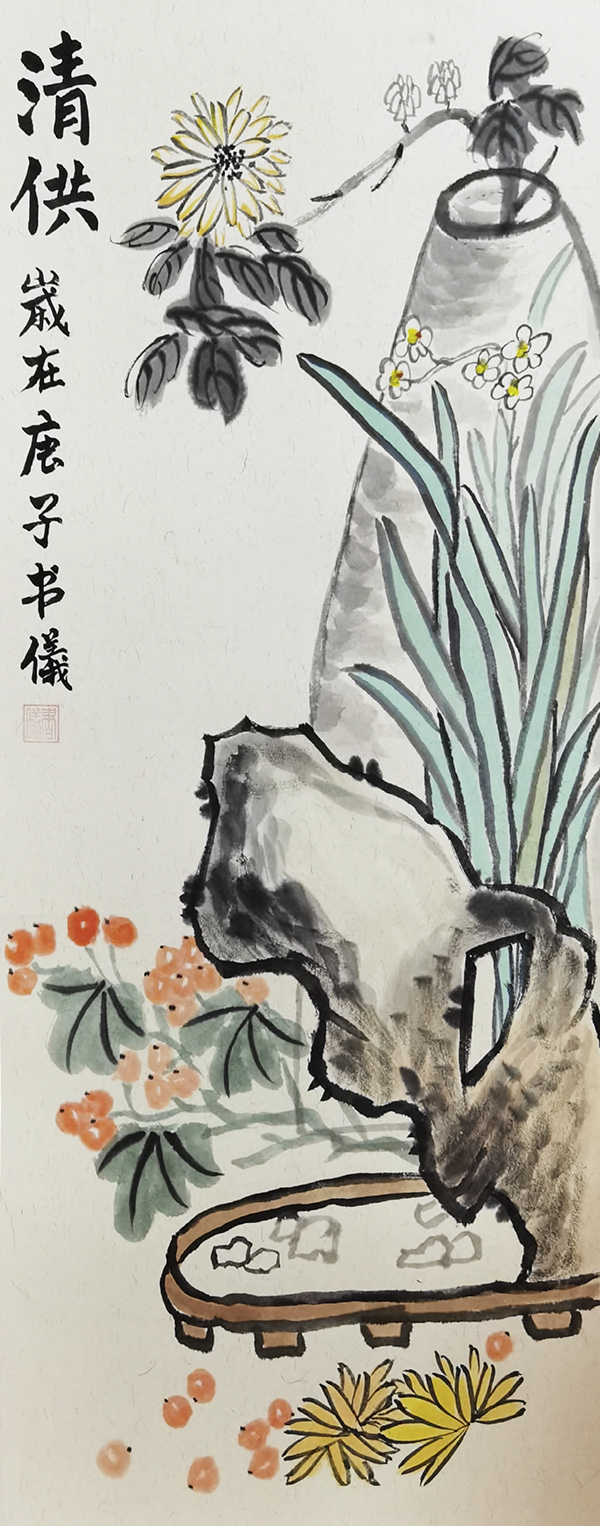 清供
岁在庚子书儀